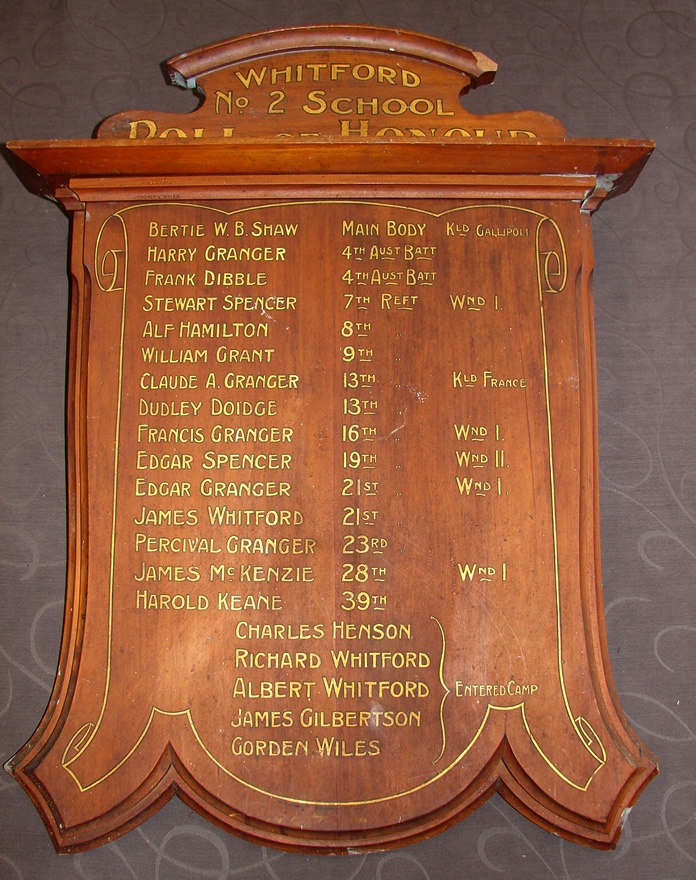 WHITFORD
No 2 SCHOOL
ROLL OF HONOUR
BERTIE W. B. SHAW MAIN BODY KLD GALLIPOLI
HARRY GRANGER 4TH AUST BATT
FRANK DIBBLE 4TH AUST BATT
STEWART SPENCER 7TH REFT WND I.
ALF HAMILTON 8TH "
WILLIAM GRANT 9TH "
CLAUDE A. GRANGER 13TH " KLD FRANCE
DUDLEY DOIDGE 13TH "
FRANCIS GRANGER 16TH " WND I.
EDGAR SPENCER 19TH " WND II.
EDGAR GRANGER 21ST " WND I.
JAMES WHITFORD 21ST "
PERCIVAL GRANGER 23RD "
JAMES McKENZIE 28TH " WND I
HAROLD KEANE 39TH
CHARLES HENSON
RICHARD WHITFORD
ALBERT WHITFORD ENTERED CAMP
JAMES GILBERTSON
GORDEN WILES